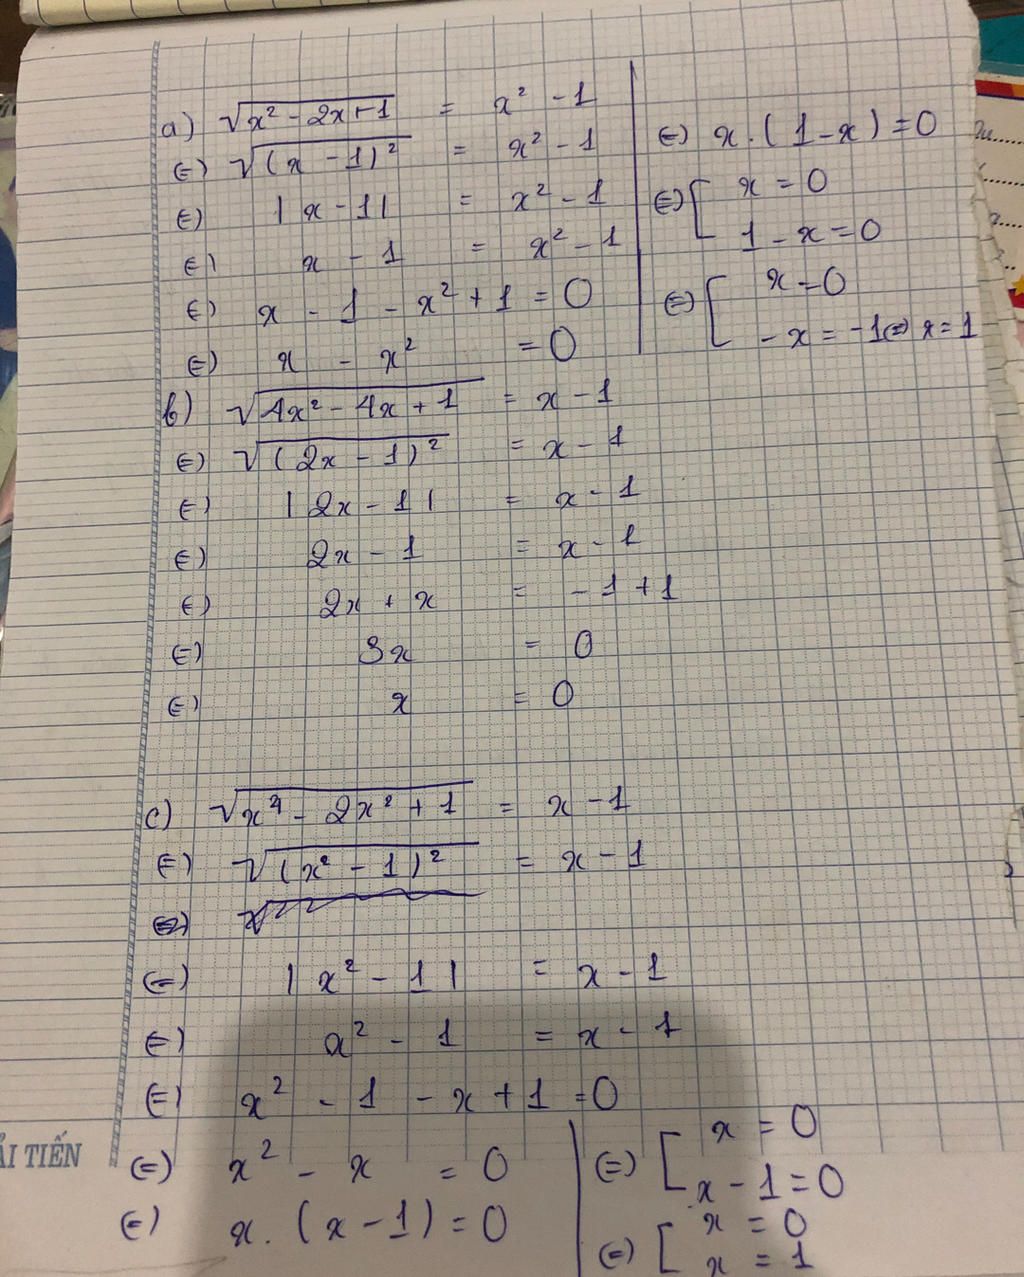 a) √(x² - 2x+1) = x² - 1
⇔) √((x - 1)²) = x² - 1
⇔) |x - 1| = x² - 1
⇔) x - 1 = x² - 1
⇔) x - 1 - x² + 1 = 0
⇔) x - x² = 0
⇔) x.(1-x) = 0
⇔) [ x = 0
1 - x = 0
⇔) [ x = 0
- x = -1 ⇔) x = 1
b) √(4x² - 4x + 1) = x - 1
⇔) √((2x - 1)²) = x - 1
⇔) |2x - 1| = x - 1
⇔) 2x - 1 = x - 1
⇔) 2x + x = - 1 + 1
⇔) 3x = 0
⇔) x = 0
c) √(x⁴ - 2x² + 1) = x - 1
⇔) √((x² - 1)²) = x - 1
⇔) |x² - 1| = x - 1
⇔) x² - 1 = x - 1
⇔) x² - 1 - x + 1 = 0
⇔) x² - x = 0
⇔) x.(x - 1) = 0
⇔) [ x = 0
x - 1 = 0
⇔) [ x = 0
x = 1
ẢI TIẾN